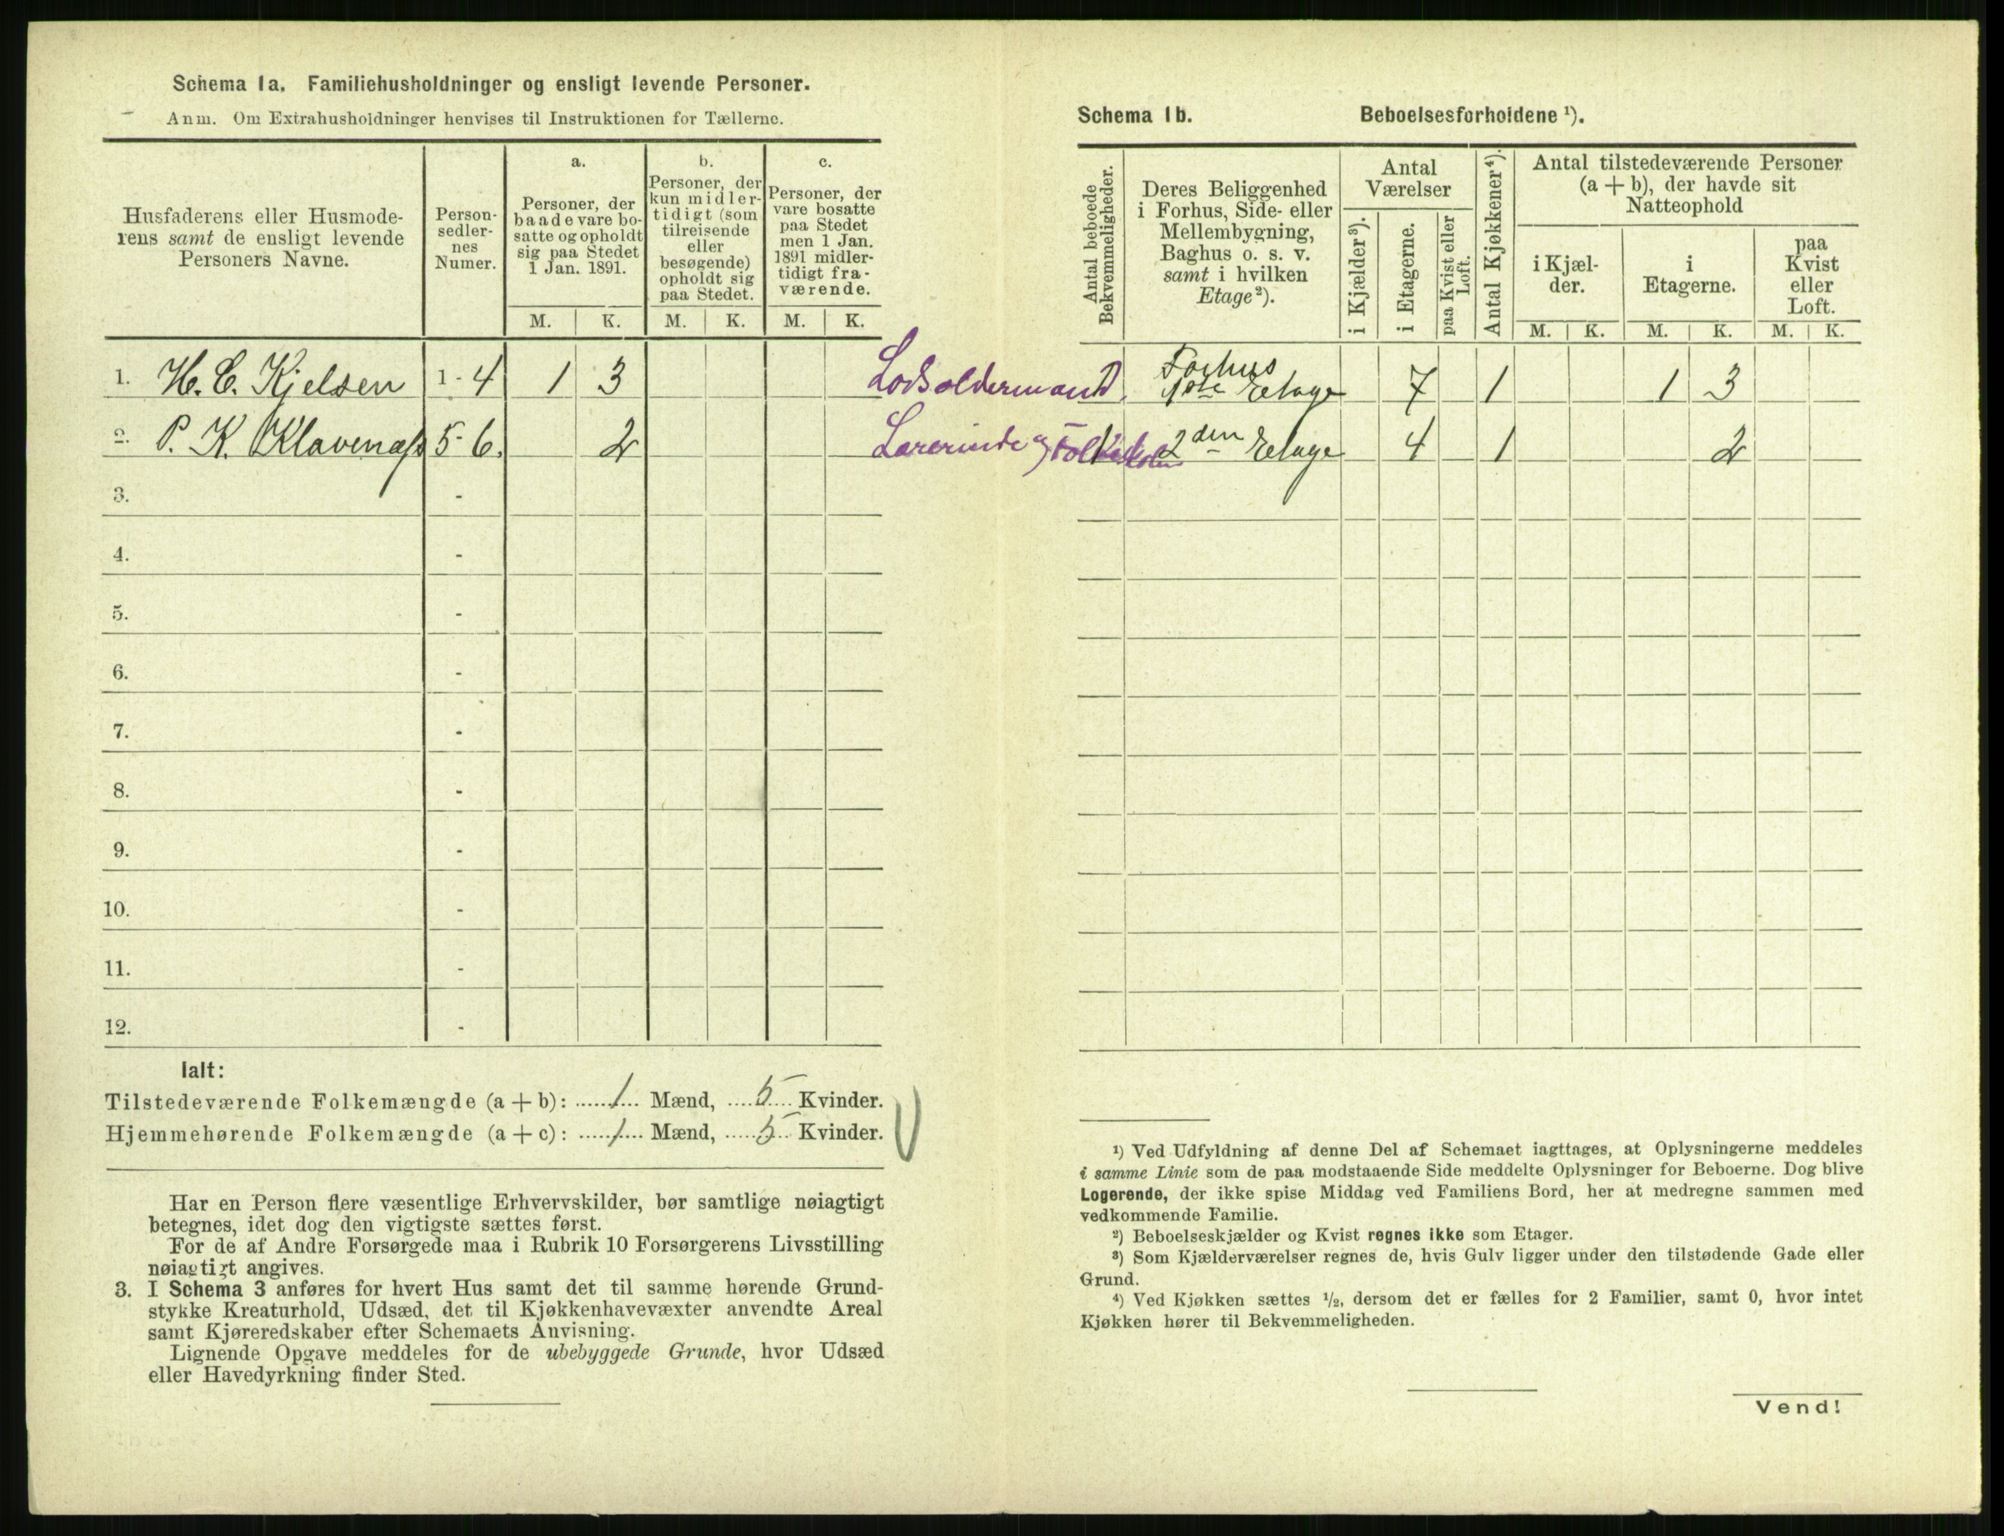 Schema 1a. Familiehusholdninger og ensligt levende Personer.
Anm. Om Extrahusholdninger henvises til Instruktionen for Tællerne.
Husfaderens eller Husmode-
rens samt de ensligt levende
Personers Navne.
Person-
sedler-
nes
Numer.
a.
Personer, der
baade vare bo-
satte og opholdt
sig paa Stedet
1 Jan. 1891.
b.
Personer, der
kun midler-
tidigt (som
tilreisende
eller
besøgende)
opholdt sig
paa Stedet.
c.
Personer, der
vare bosatte
paa Stedet
men 1 Jan.
1891 midler-
tidigt fra-
værende.
M. K. M. K. M. K.
1. H. C. Kjelsen 1 - 4 1 3 Lodsoldermand
2. P. K. Klavenæss 5 - 6. 2 Lærerinde og Folkeskolen
3. -
4. -
5. -
6. -
7. -
8. -
9. -
10. -
11. -
12. -
Ialt:
Tilstedeværende Folkemængde (a + b): 1 Mænd, 5 Kvinder.
Hjemmehørende Folkemængde (a + c): 1 Mænd, 5 Kvinder.
Har en Person flere væsentlige Erhvervskilder, bør samtlige nøiagtigt
betegnes, idet dog den vigtigste sættes først.
For de af Andre Forsørgede maa i Rubrik 10 Forsørgerens Livsstilling
nøiagtigt angives.
3. I Schema 3 anføres for hvert Hus samt det til samme hørende Grund-
stykke Kreaturhold, Udsæd, det til Kjøkkenhavevæxter anvendte Areal
samt Kjøreredskaber efter Schemaets Anvisning.
Lignende Opgave meddeles for de ubebyggede Grunde, hvor Udsæd
eller Havedyrkning finder Sted.
Schema 1b. Beboelsesforholdene ¹).
Antal beboede
Bekvemmeligheder.
Deres Beliggenhed
i Forhus, Side- eller
Mellembygning,
Baghus o. s. v.
samt i hvilken
Etage²).
Antal
Værelser
i Kjælder³).
i Etagerne.
paa Kvist eller
Loft.
Antal Kjøkkener⁴).
Antal tilstedeværende Personer
(a + b), der havde sit
Natteophold
i Kjæl-
der.
i
Etagerne.
paa
Kvist
eller
Loft.
M. K. M. K. M. K.
1 Forhus
1ste Etage 7 1 1 3
1 2den Etage 4 1 2
¹) Ved Udfyldning af denne Del af Schemaet iagttages, at Oplysningerne meddeles
i samme Linie som de paa modstaaende Side meddelte Oplysninger for Beboerne. Dog blive
Logerende, der ikke spise Middag ved Familiens Bord, her at medregne sammen med
vedkommende Familie.
²) Beboelseskjælder og Kvist regnes ikke som Etager.
³) Som Kjælderværelser regnes de, hvis Gulv ligger under den tilstødende Gade eller
Grund.
⁴) Ved Kjøkken sættes ½, dersom det er fælles for 2 Familier, samt 0, hvor intet
Kjøkken hører til Bekvemmeligheden.
Vend!